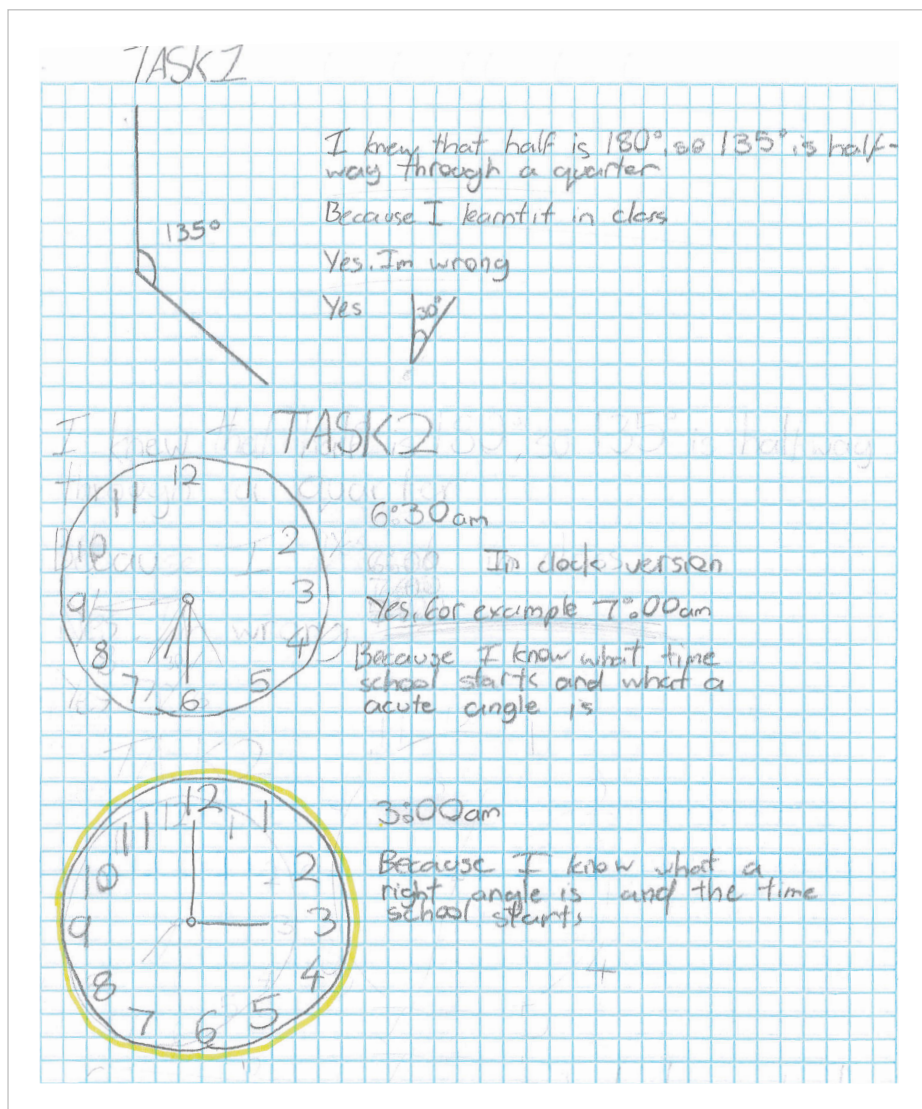 TASK1
I knew that half is 180°, so 135° is half-
way through a quarter
Because I learnt it in class
135°
Yes. Im wrong
Yes
30°
TASK2
12
11 1
10 2
9 3
8 4
7 5
6
6:30am
In clock version
Yes, for example 7:00am
Because I know what time
school starts and what a
acute angle is
12
11 1
10 2
9 3
8 4
7 5
6
3:00am
Because I know what a
right angle is and the time
school starts